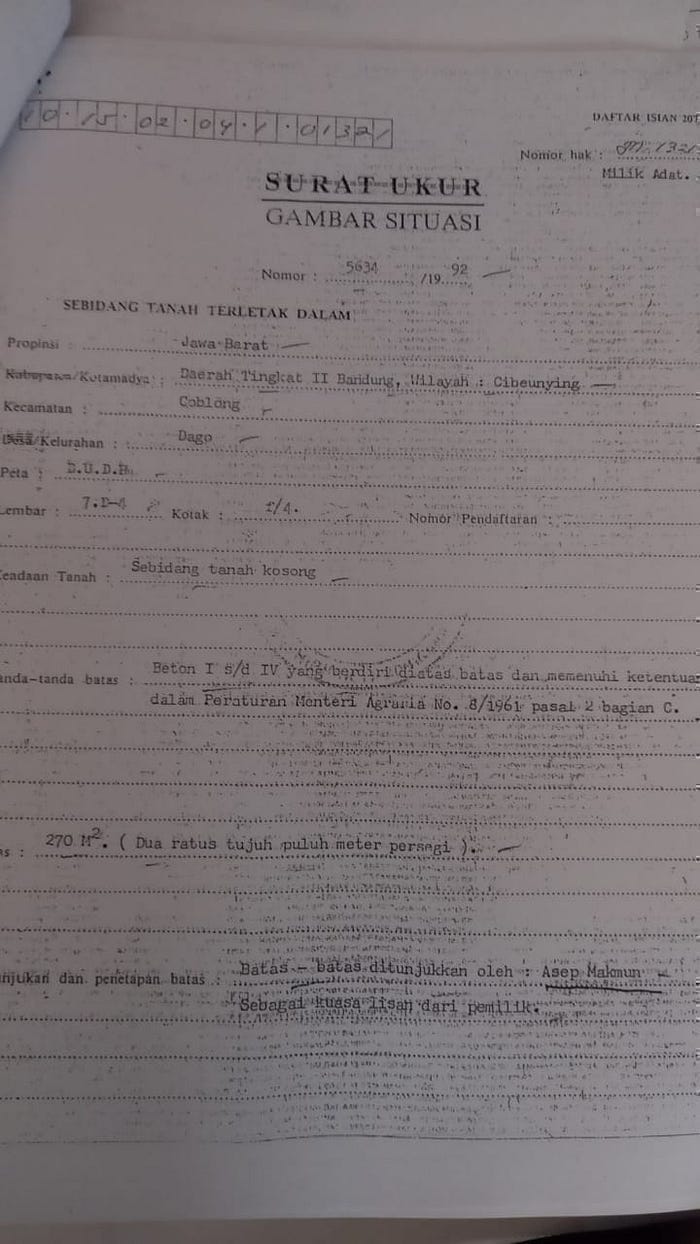 10.15.02.04.1.01321
DAFTAR ISIAN 207
Nomor hak :
Milik Adat.
SURAT UKUR
GAMBAR SITUASI
Nomor : 5634 /19 92
SEBIDANG TANAH TERLETAK DALAM
Propinsi : Jawa Barat
Kabupaten/Kotamadya : Daerah Tingkat II Bandung, Wilayah : Cibeunying
Kecamatan : Coblong
Desa/Kelurahan : Dago
Peta :
Lembar : Kotak : Nomor Pendaftaran :
eadaan Tanah : Sebidang tanah kosong
anda-tanda batas : Beton I s/d IV yang berdiri diatas batas dan memenuhi ketentua
dalam Peraturan Menteri Agraria No. 8/1961 pasal 2 bagian C.
as : 270 M2. ( Dua ratus tujuh puluh meter persegi ).
unjukan dan penetapan batas : Batas - batas ditunjukkan oleh : Asep Makmun
Sebagai kuasa lisan dari pemilik.